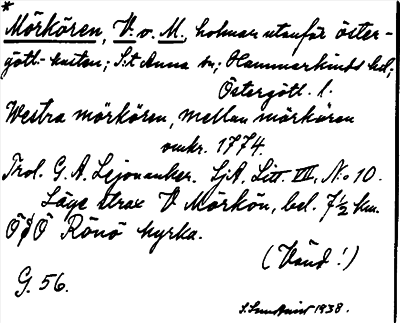 *
Mörkören, V. o. M., holmar utanför öster-
götl. kusten; S:t Anna sn; Hammarkinds hd;
Östergötl. l.
Westra mörkören, mellan mörkören
omkr. 1774.
Trol. G. A. Lejonanker. SjA. Litt. VII, N:o 10.
Läge strax V Mörkön, bel. 7½ km.
ÖSÖ Rönö kyrka.
(Vänd!)
G. 56.
1938.